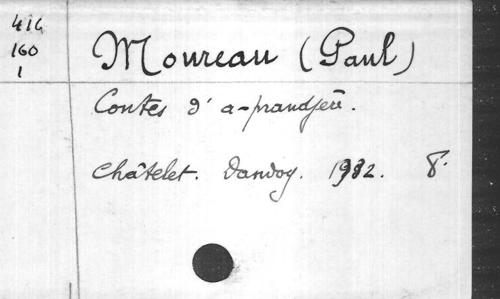 416
160
1
Moureau (Paul)
Contes d'a-prandjêre.
Châtelet. Dandoy. 1932. 8°.